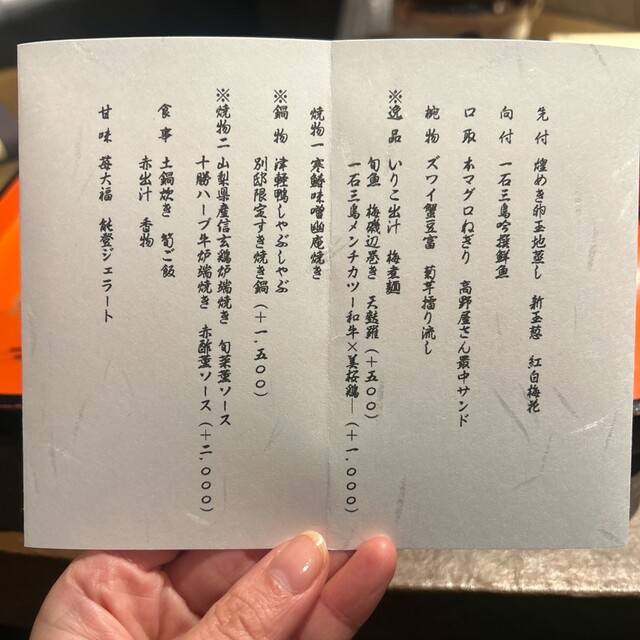 先付 煌めき卵玉地蒸し 新玉葱 紅白梅花
向付 一石三鳥吟撰鮮魚
口取 本マグロねぎり 高野屋さん最中サンド
椀物 ズワイ蟹豆富 菊芋擂り流し
※逸品 いりこ出汁 梅煮麺
旬魚 梅磯辺巻き 天麩羅(+五〇〇)
一石三鳥メンチカツー和牛×美桜鶏―(+一.〇〇〇)
焼物一 寒鰆味噌幽庵焼き
※鍋物 津軽鴨しゃぶしゃぶ
別邸限定すき焼き鍋(+一.五〇〇)
※焼物二 山梨県産信玄鶏炉端焼き 旬菜薫ソース
十勝ハーブ牛炉端焼き 赤酢薫ソース(+二.〇〇〇)
食事 土鍋炊き 筍ご飯
赤出汁 香物
甘味 苺大福 能登ジェラート